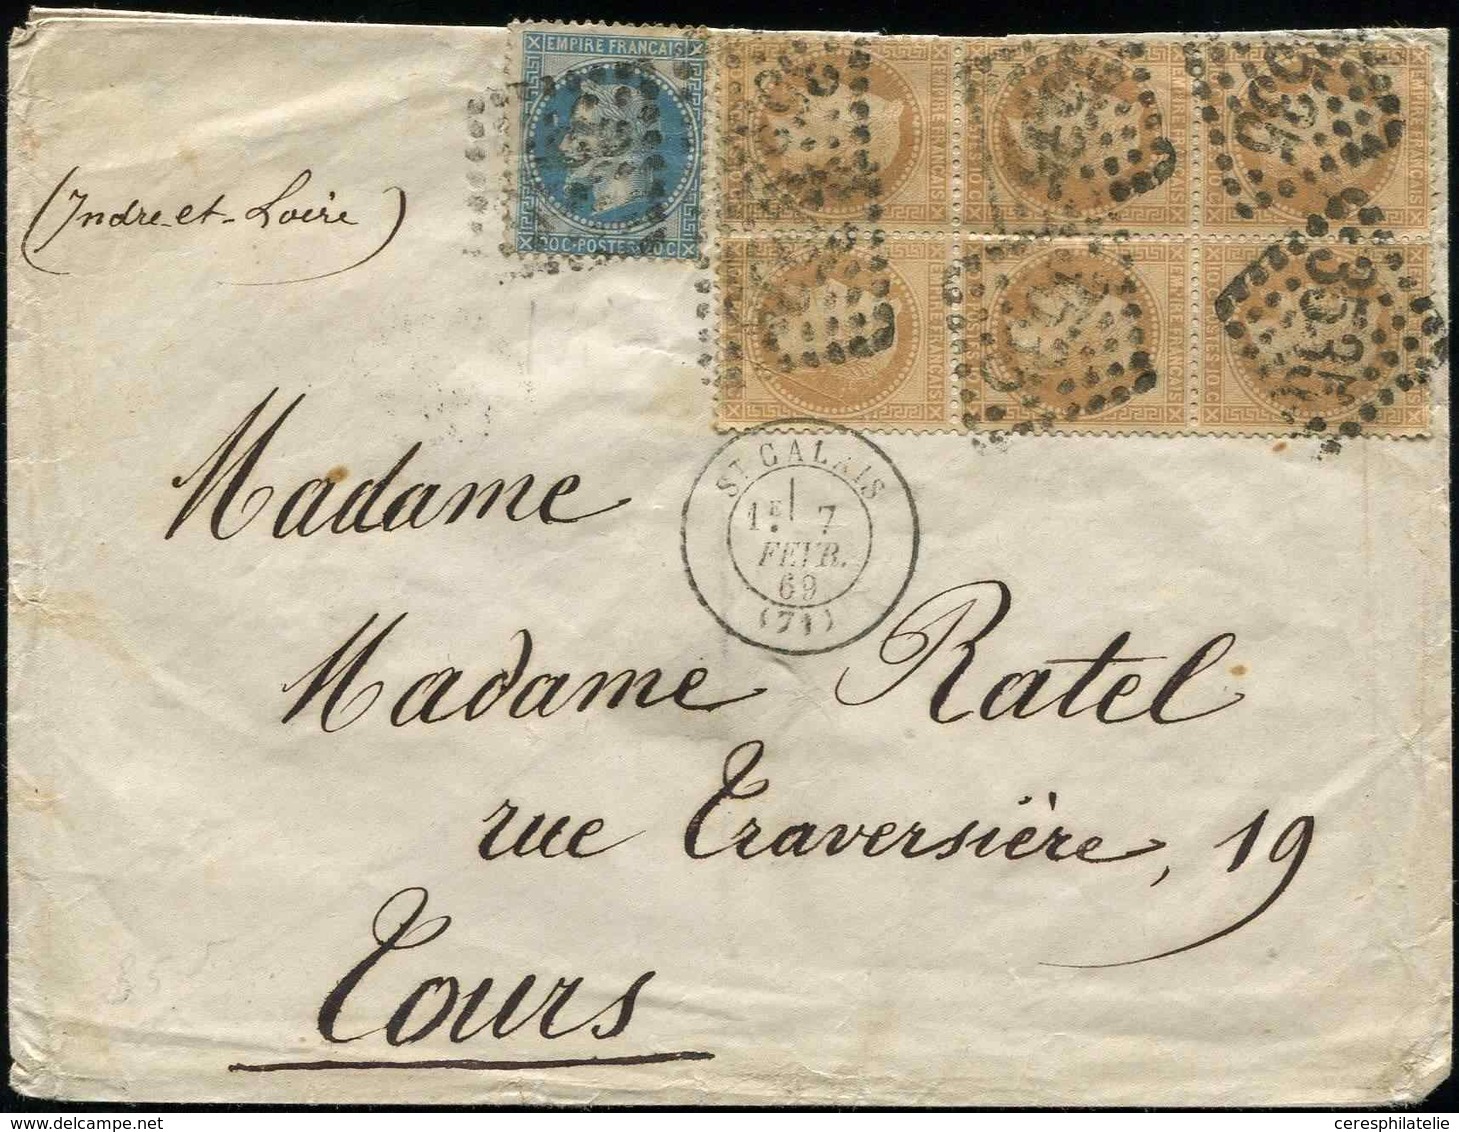 EMPIRE FRANCAIS
20 C·POSTES·20 C
EMPIRE FRANCAIS
10 C POSTES 10 C
(Indre-et-Loire)
ST CALAIS
1E 7
FEVR.
69
(71)
Madame
Madame Ratel
rue Traversière, 19
Tours
ceresphilatelie